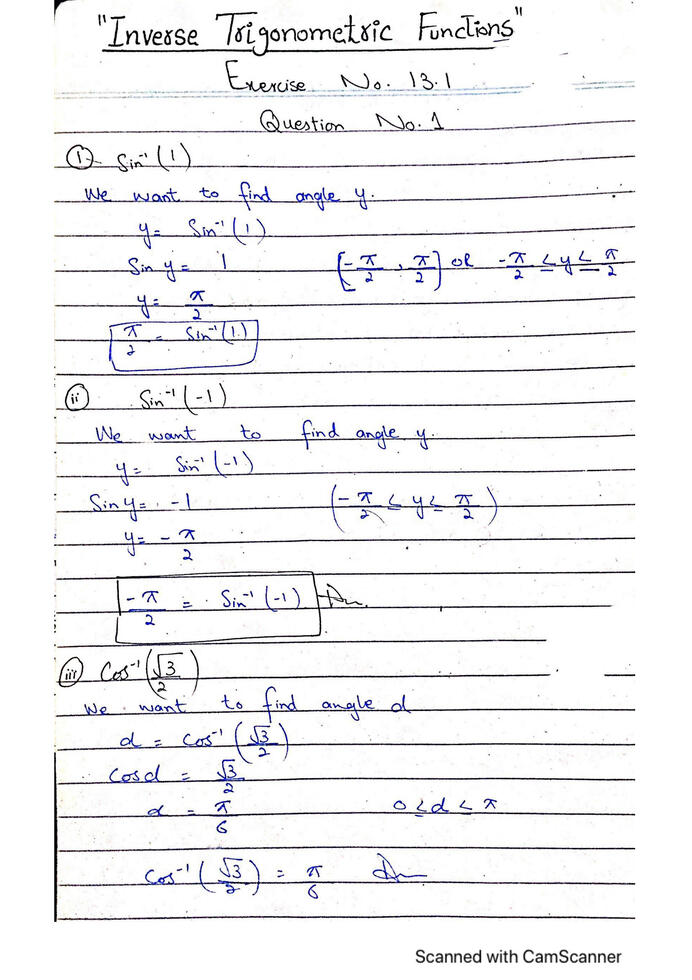 "Inverse Trigonometric Functions"
Exercise No. 13.1
Question No. 1
i) Sin⁻¹(1)
We want to find angle y.
y = Sin⁻¹(1)
Sin y = 1 [-π/2, π/2] OR -π/2 ≤ y ≤ π/2
y = π/2
π/2 = Sin⁻¹(1)
ii) Sin⁻¹(-1)
We want to find angle y.
y = Sin⁻¹(-1)
Sin y = -1 (-π/2 ≤ y ≤ π/2)
y = -π/2
-π/2 = Sin⁻¹(-1)
iii) Cos⁻¹(√3/2)
We want to find angle d
d = Cos⁻¹(√3/2)
Cos d = √3/2
d = π/6 0 ≤ d < π
Cos⁻¹(√3/2) = π/6
Scanned with CamScanner